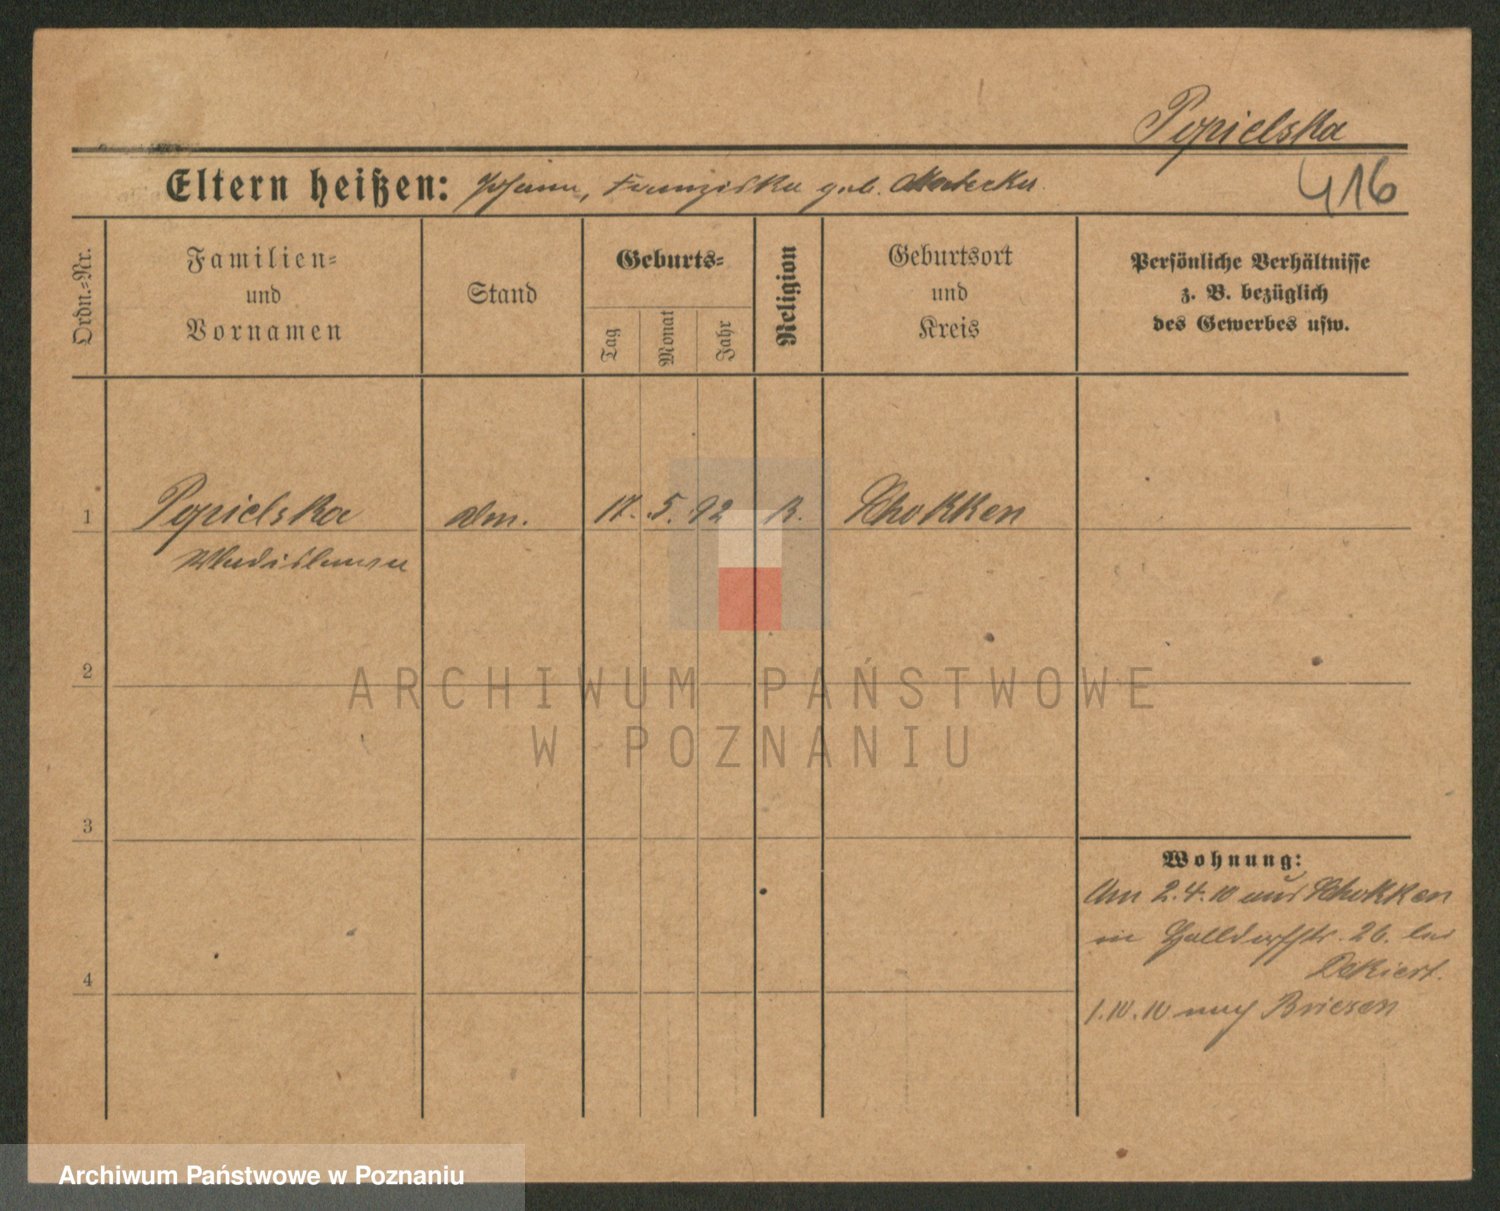 Popielska
Eltern heißen: Johann, Franziska geb.
416
Ordn.-Nr.
Familien-
und
Vornamen
Stand
Geburts-
Tag
Monat
Jahr
Religion
Geburtsort
und
Kreis
Persönliche Verhältnisse
z. B. bezüglich
des Gewerbes usw.
1 Popielska 17. 5. 92 K. Schokken
Wladislawa
2
3
4
Wohnung:
Am 2.4.10 aus Schokken
in Halldorfstr. 26. bei
Dekiert.
1.10.10 nach Briesen
ARCHIWUM PAŃSTWOWE
W POZNANIU
Archiwum Państwowe w Poznaniu